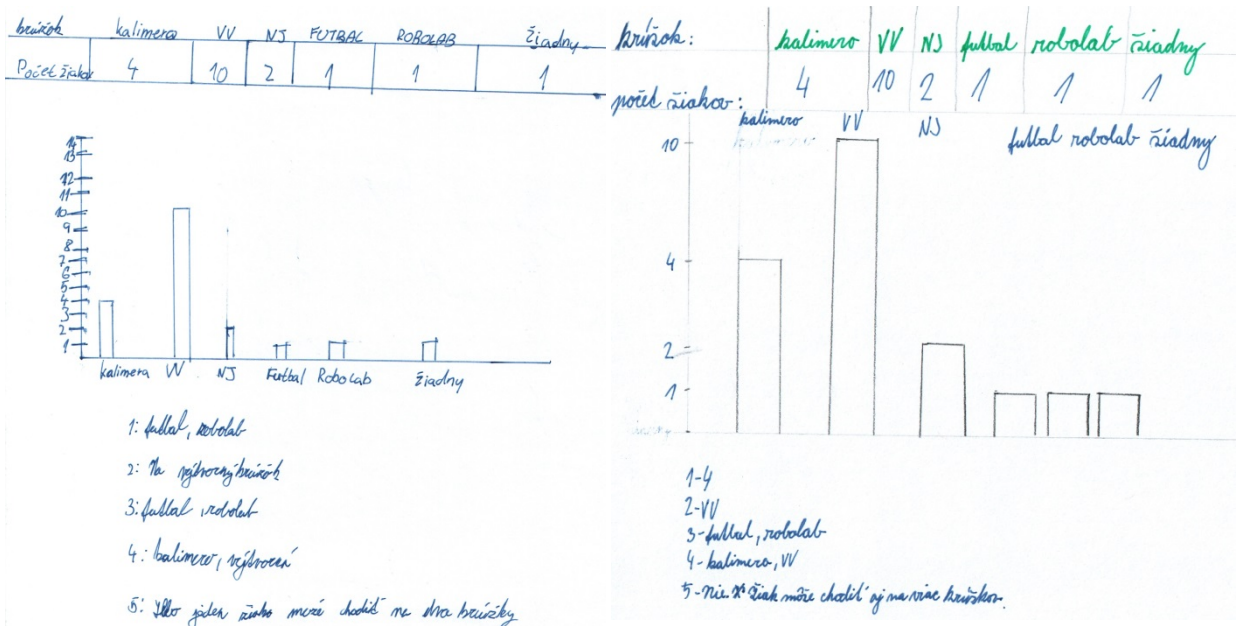 krúžok kalimero VV NJ FUTBAL ROBOLAB žiadny
Počet žiakov 4 10 2 1 1 1
14
13
12
11
10
9
8
7
6
5
4
3
2
1
kalimera VV NJ Futbal Robolab žiadny
1: futbal, robolab
2: Na výtvarný krúžok
3: futbal, robolab
4: kalimero, výtvarná
5: jeden žiak može chodiť na dva krúžky
krúžok: kalimero VV NJ futbal robolab žiadny
počet žiakov: 4 10 2 1 1 1
kalimero VV NJ futbal robolab žiadny
10
4
2
1
1-4
2-VV
3-futbal, robolab
4-kalimero, VV
5-nie. Žiak môže chodiť aj na viac krúžkov.